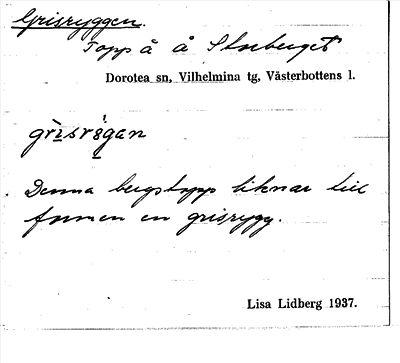 Grisryggen.
Topp å å Storberget
Dorotea sn, Vilhelmina tg, Västerbottens l.
Denna bergstopp liknar till
formen en grisrygg.
Lisa Lidberg 1937.